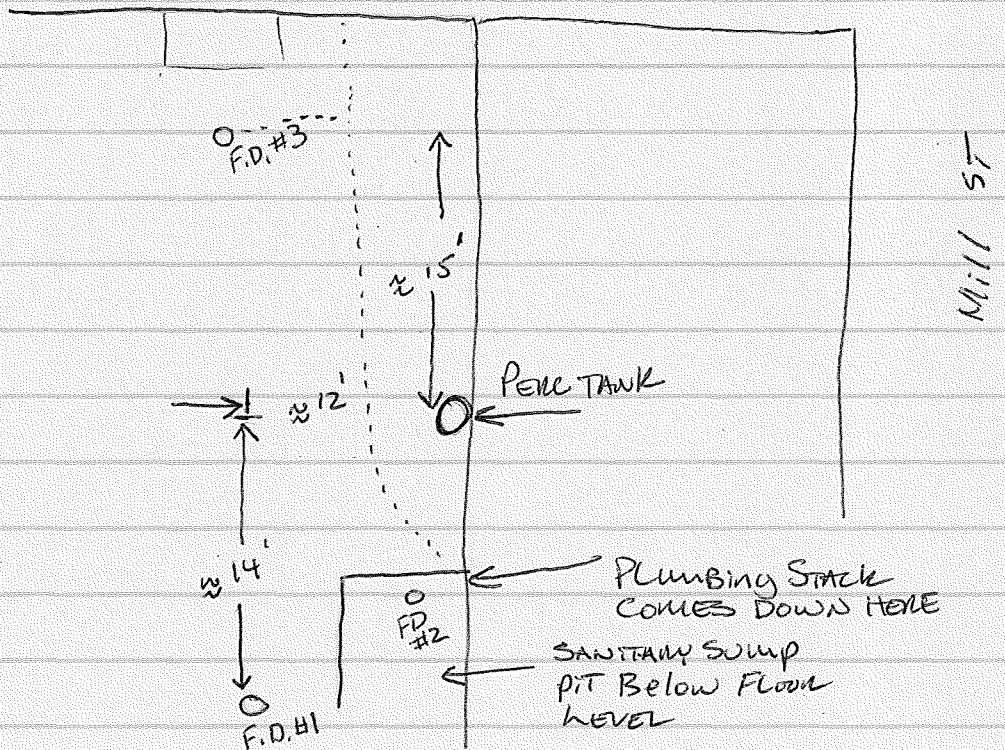 F.D. #3
Mill ST
≈ 15'
PERC TANK
≈ 12'
≈ 14'
PLUMBING STACK
COMES DOWN HERE
FD
#2
SANITARY SUMP
PIT BELOW FLOOR
LEVEL
F.D. #1